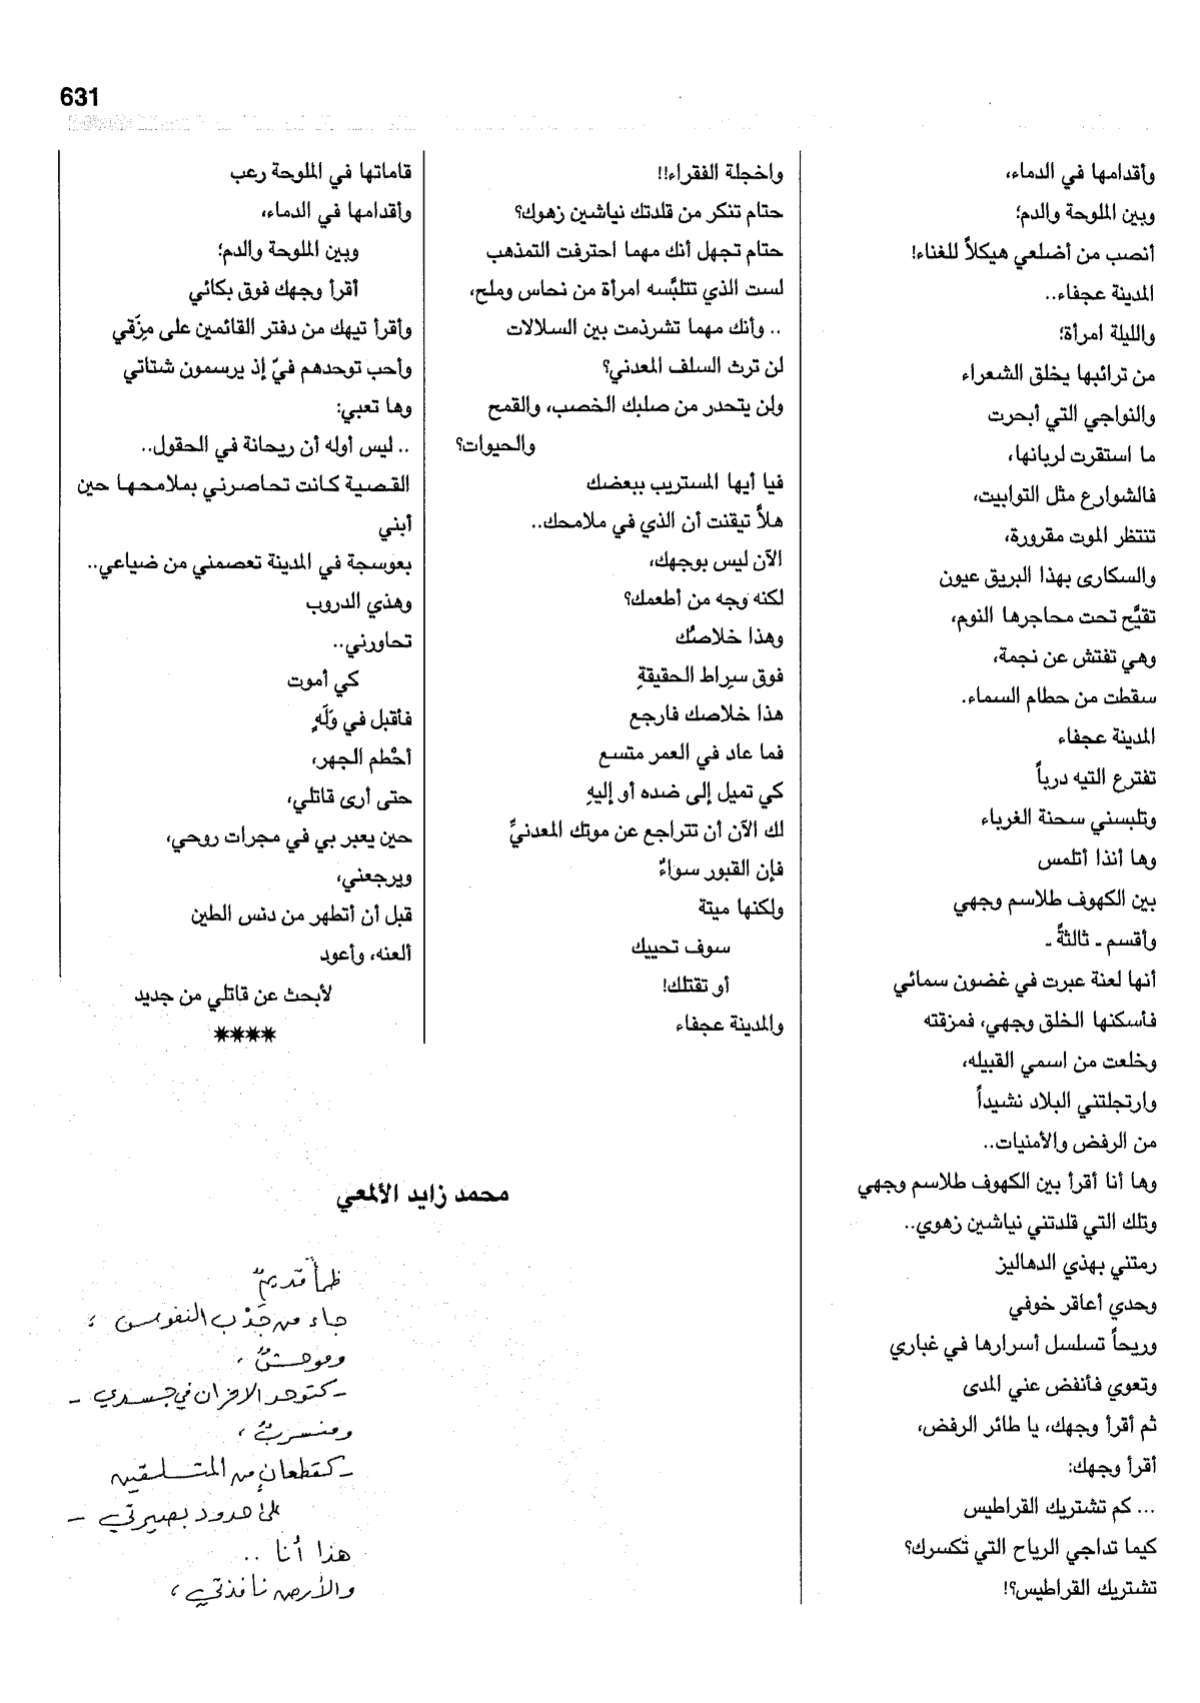 631
وأقدامها في الدماء،
وبين الملوحة والدم؛
أنصب من أضلعي هيكلاً للغناء!
المدينة عجفاء..
والليلة امرأة؛
من ترائبها يخلق الشعراء
والنواجي التي أبحرت
ما استقرت لربانها،
فالشوارع مثل التوابيت،
تنتظر الموت مقرورة،
والسكارى بهذا البريق عيون
تقيَّح تحت محاجرها النوم،
وهي تفتش عن نجمة،
سقطت من حطام السماء.
المدينة عجفاء
تفترع التيه درباً
وتلبسني سحنة الغرباء
وها أنذا أتلمس
بين الكهوف طلاسم وجهي
وأقسم ـ ثالثةً ـ
أنها لعنة عبرت في غضون سمائي
فأسكنها الخلق وجهي، فمزقته
وخلعت من اسمي القبيله،
وارتجلتني البلاد نشيداً
من الرفض والأمنيات..
وها أنا أقرأ بين الكهوف طلاسم وجهي
وتلك التي قلدتني نياشين زهوي..
رمتني بهذي الدهاليز
وحدي أعاقر خوفي
وريحاً تسلسل أسرارها في غباري
وتعوي فأنفض عني المدى
ثم أقرأ وجهك، يا طائر الرفض،
أقرأ وجهك:
... كم تشتريك القراطيس
كيما تداجي الرياح التي تكسرك؟
تشتريك القراطيس؟!
واخجلة الفقراء!!
حتام تنكر من قلدتك نياشين زهوك؟
حتام تجهل أنك مهما احترفت التمذهب
لست الذي تتلبَّسه امرأة من نحاس وملح،
.. وأنك مهما تشرذمت بين السلالات
لن ترث السلف المعدني؟
ولن يتحدر من صلبك الخصب، والقمح
والحيوات؟
فيا أيها المستريب ببعضك
هلاَّ تيقنت أن الذي في ملامحك..
الآن ليس بوجهك،
لكنه وجه من أطعمك؟
وهذا خلاصُك
فوق سراط الحقيقةِ
هذا خلاصك فارجع
فما عاد في العمر متسع
كي تميل إلى ضده أو إليهِ
لك الآن أن تتراجع عن موتك المعدنيِّ
فإن القبور سواءٌ
ولكنها ميتة
سوف تحييك
أو تقتلك!
والمدينة عجفاء
قاماتها في الملوحة رعب
وأقدامها في الدماء،
وبين الملوحة والدم؛
أقرأ وجهك فوق بكائي
وأقرأ تيهك من دفتر القائمين على مِزَقي
وأحب توحدهم فيّ إذ يرسمون شتاتي
وها تعبي:
.. ليس أوله أن ريحانة في الحقول..
القصية كانت تحاصرني بملامحها حين
أبني
بعوسجة في المدينة تعصمني من ضياعي..
وهذي الدروب
تحاورني..
كي أموت
فأقبل في وَلَهٍ
أحْطم الجهر،
حتى أرى قاتلي،
حين يعبر بي في مجرات روحي،
ويرجعني،
قبل أن أتطهر من دنس الطين
ألعنه، وأعود
لأبحث عن قاتلي من جديد
****
محمد زايد الألمعي
ظمأ قديمٌ
جاء من جَدْب النفوس ؛
وموحشٌ ،
ـ كتوحد الأحزان في جسدي ـ
ومنسربٌ ،
ـ كقطعانٍ من المتسلقين
على حدود بصيرتي ـ
هذا أنا ..
والأرض نافذتي ،